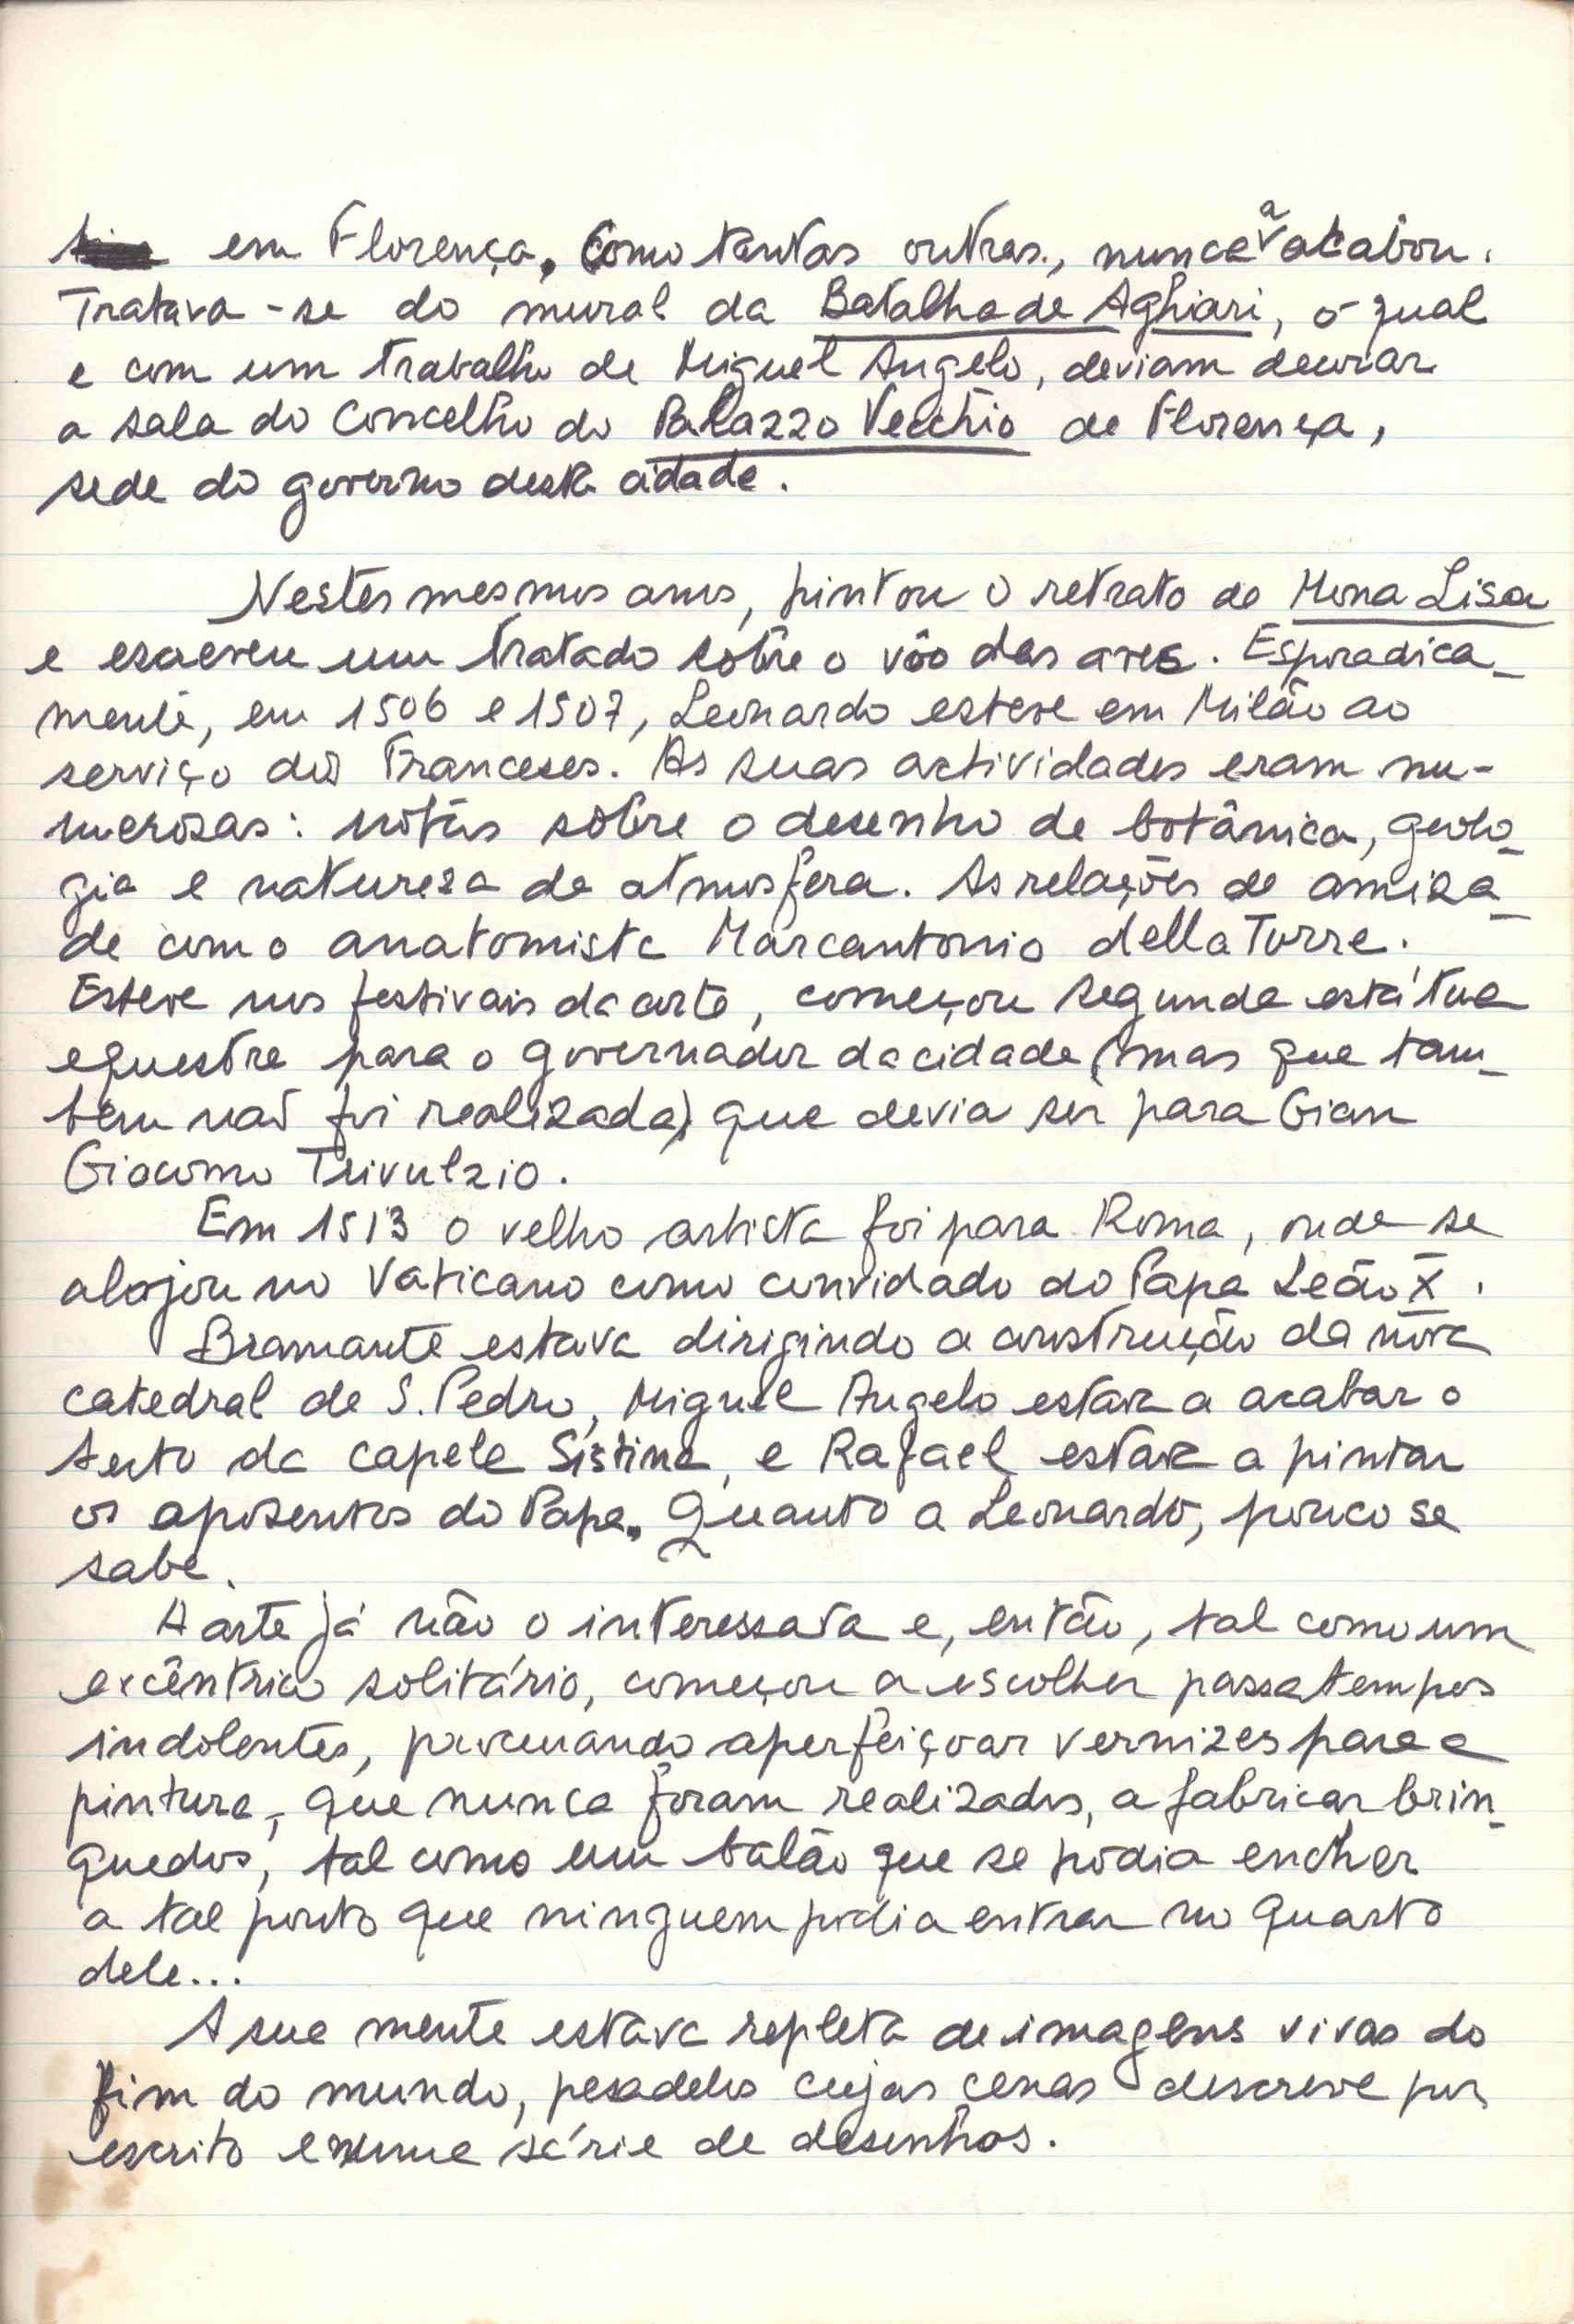 em Florença, Como tantas outras, nunca a acabou.
Tratava-se do mural da Batalha de Aghiari, o qual
e com um trabalho de Miguel Angelo, deviam decorar
a sala do Concelho do Palazzo Vecchio de Florença,
sede do governo desta cidade.
Nestes mesmos anos, pintou o retrato de Mona Lisa
e escreveu um tratado sobre o vôo das aves. Esporadica-
mente, em 1506 e 1507, Leonardo esteve em Milão ao
serviço dos Franceses. As suas actividades eram nu-
merosas: notas sobre o desenho de botânica, geolo-
gia e natureza da atmosfera. As relações de amiza-
de com o anatomista Marcantonio della Torre.
Esteve nos festivais da arte, começou segunda estátua
equestre para o governador da cidade (mas que tam-
bem não foi realizada) que devia ser para Gian
Giacomo Trivulzio.
Em 1513 o velho artista foi para Roma, onde se
alojou no Vaticano como convidado do Papa Leão X.
Bramante estava dirigindo a construção da nova
catedral de S. Pedro, Miguel Angelo estava a acabar o
tecto da capela Sistina, e Rafael estava a pintar
os aposentos do Papa. Quanto a Leonardo, pouco se
sabe.
A arte já não o interessava e, então, tal como um
excêntrico solitário, começou a escolher passatempos
indolentes, procurando aperfeiçoar vernizes para a
pintura, que nunca foram realizados, a fabricar brin-
quedos, tal como um balão que se podia encher
a tal ponto que ninguem podia entrar no quarto
dele...
A sua mente estava repleta de imagens vivas do
fim do mundo, pesadelos cujas cenas descreve por
escrito e numa série de desenhos.